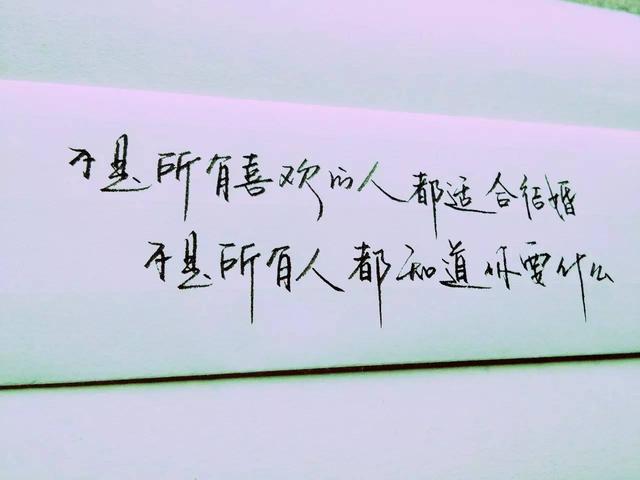 不是所有喜欢的人都适合结婚
不是所有人都知道你要什么